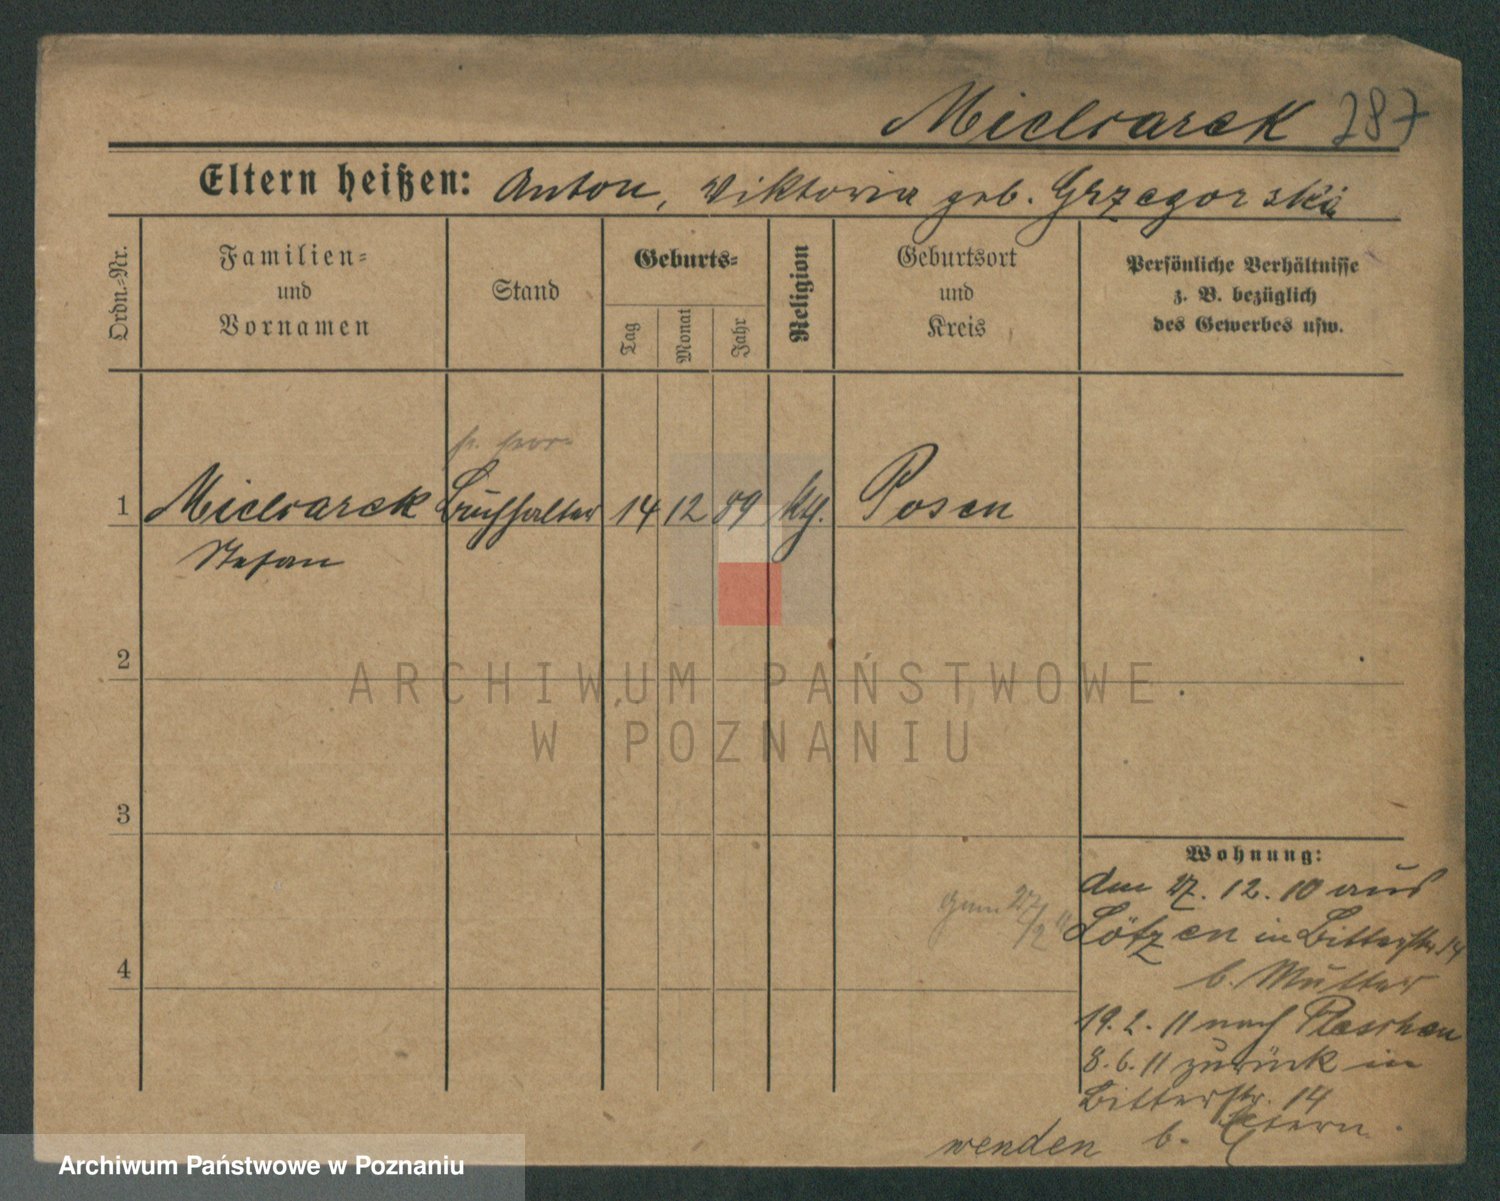 Mielcarek 287
Eltern heißen: Anton, Viktoria geb. Grzegorska
Ordn.-Nr.
Familien-
und
Vornamen
Stand
Geburts-
Tag
Monat
Jahr
Religion
Geburtsort
und
Kreis
Persönliche Verhältnisse
z. B. bezüglich
des Gewerbes usw.
1 Mielcarek Buchhalter 14 12 89 kth. Posen
Stefan
2
3
4
ARCHIWUM PAŃSTWOWE
W POZNANIU
Wohnung:
den 27. 12. 10 aus
Lötzen in Bitterstr. 14
b. Mutter
19. 2. 11 nach Pleschen
8. 6. 11 zurück in
Bitterstr. 14
b. Eltern
wenden
Archiwum Państwowe w Poznaniu